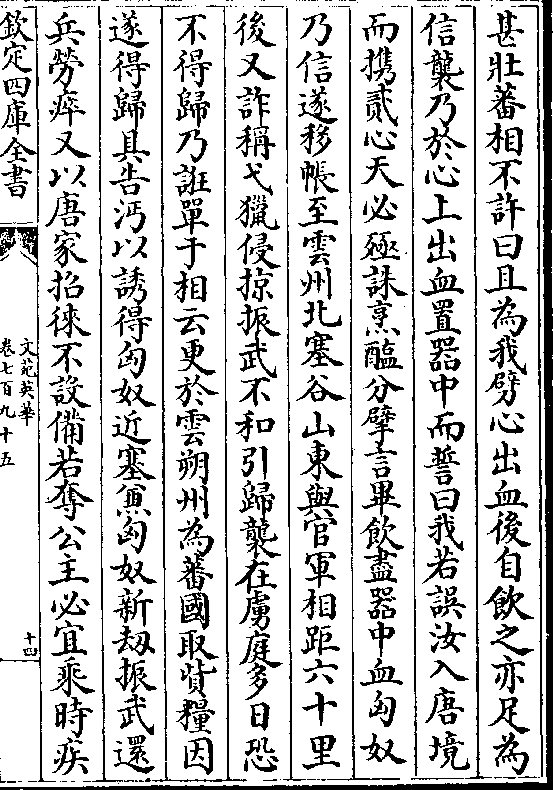 甚壯蕃相不許曰且為我劈心出血後自飲之亦足為
信襲乃於心上出血置器中而誓曰我若誤汝入唐境
而攜貳心天必殛誅烹醢分擘言畢飲盡器中血匈奴
乃信遂移帳至雲州北塞谷山東與官軍相距六十里
後又詐稱弋獵侵掠振武不和引歸襲在虜庭多日恐
不得歸乃誑單于相云更於雲朔州為蕃國取貲糧因
遂得歸具告沔以誘得匈奴近塞兼匈奴新劫振武還
兵勞瘁又以唐家招徠不設備若奪公主必宜乘時疾
欽定四庫全書
文苑英華
卷七百九十五
十四